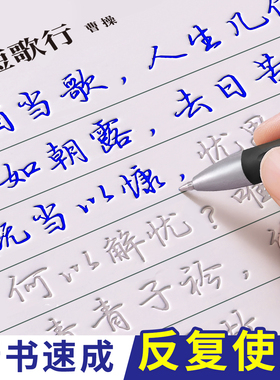 短歌行 曹操
酒当歌，人生几何
如朝露，去日苦
慨当以慷，忧思
何以解忧？唯
青青子衿，
书速成 反复使